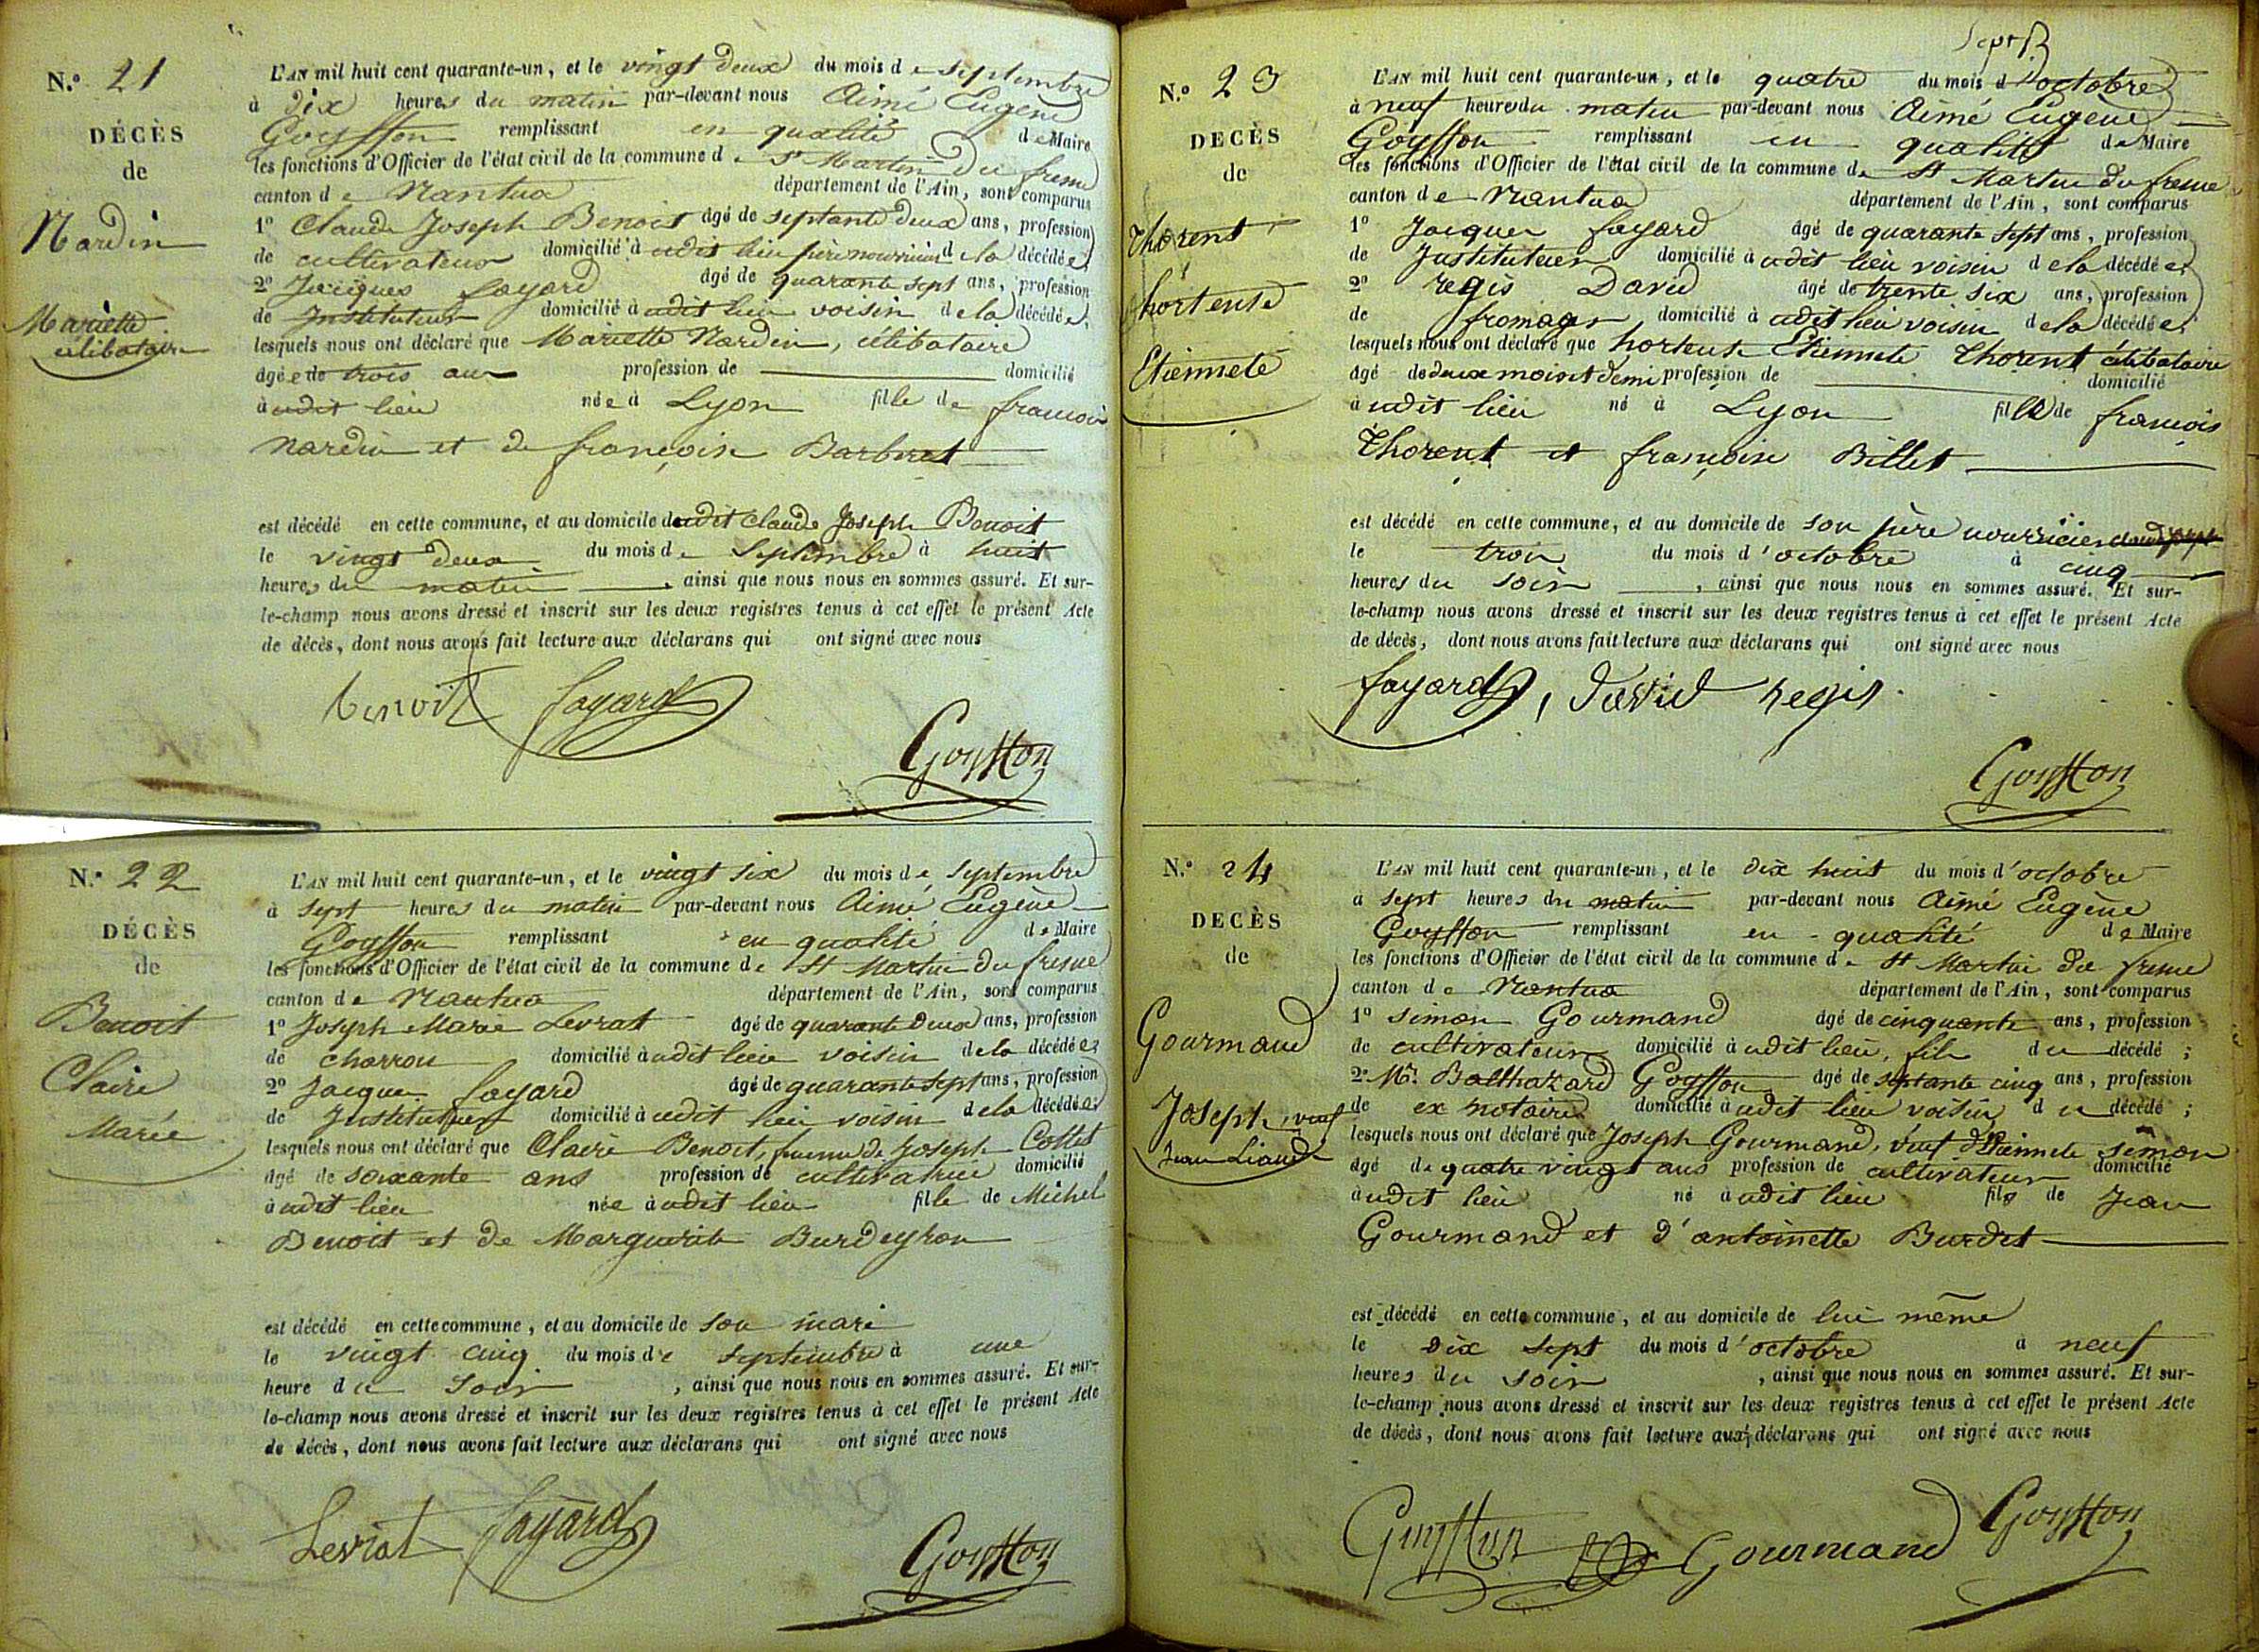 N.º 21
DÉCÈS
de
Nardin
Mariette
célibataire
L'AN mil huit cent quarante-un, et le vingt deux du mois de septembre
à dix heures du matin par-devant nous Aimé Eugène
Goyffon remplissant en qualité de Maire
les fonctions d'Officier de l'état civil de la commune de St Martin du fresne
canton de Nantua département de l'Ain, sont comparus
1º Claude Joseph Benoit âgé de septante deux ans, profession
de cultivateur domicilié à udit lieu père nourricier de la décédée;
2º Jacques fayard âgé de quarante sept ans, profession
de Instituteur domicilié à udit lieu voisin de la décédée;
lesquels nous ont déclaré que Mariette Nardin, célibataire
âgée de trois ans profession de domicilié
à udit lieu née à Lyon fille de françois
Nardin et de françoise Barbret
est décédé en cette commune, et au domicile de udit Claude Joseph Benoit
le vingt deux du mois de Septembre à huit
heures du matin, ainsi que nous nous en sommes assuré. Et sur-
le-champ nous avons dressé et inscrit sur les deux registres tenus à cet effet le présent Acte
de décès, dont nous avons fait lecture aux déclarans qui ont signé avec nous
benoit fayard
Goyffon
N.º 22
DÉCÈS
de
Benoit
Claire
Marie
L'AN mil huit cent quarante-un, et le vingt six du mois de septembre
à sept heures du matin par-devant nous Aimé Eugène
Goyffon remplissant en qualité de Maire
les fonctions d'Officier de l'état civil de la commune de St Martin du fresne
canton de Nantua département de l'Ain, sont comparus
1º Joseph Marie Levrat âgé de quarante deux ans, profession
de charron domicilié à udit lieu voisin de la décédée;
2º Jacques fayard âgé de quarante sept ans, profession
de Instituteur domicilié à udit lieu voisin de la décédée;
lesquels nous ont déclaré que Claire Benoit, femme de Joseph Collet
âgé de soixante ans profession de cultivatrice domicilié
à udit lieu née à udit lieu fille de Michel
Benoit et de Marguerite Burdeyron
est décédé en cette commune, et au domicile de son mari
le vingt cinq du mois de septembre à une
heure du soir, ainsi que nous nous en sommes assuré. Et sur-
le-champ nous avons dressé et inscrit sur les deux registres tenus à cet effet le présent Acte
de décès, dont nous avons fait lecture aux déclarans qui ont signé avec nous
Levrat fayard
Goyffon
N.º 23
DECÈS
de
Thorent
hortense
Etiennete
L'AN mil huit cent quarante-un, et le quatre du mois d'octobre
à neuf heures du matin par-devant nous Aimé Eugène
Goyffon remplissant en qualité de Maire
les fonctions d'Officier de l'état civil de la commune de St Martin du fresne
canton de Nantua département de l'Ain, sont comparus
1º Jacques fayard âgé de quarante sept ans, profession
de Instituteur domicilié à udit lieu voisin de la décédée;
2º regis David âgé de trente six ans, profession
de fromager domicilié à udit lieu voisin de la décédée;
lesquels nous ont déclaré que hortense Etiennete Thorent célibataire
âgé de deux mois et demi profession de domicilié
à udit lieu né à Lyon fille de françois
Thorent et françoise Billet
est décédé en cette commune, et au domicile de son père nourricier
le trois du mois d'octobre à cinq
heures du soir, ainsi que nous nous en sommes assuré. Et sur-
le-champ nous avons dressé et inscrit sur les deux registres tenus à cet effet le présent Acte
de décès, dont nous avons fait lecture aux déclarans qui ont signé avec nous
fayard, david regis
Goyffon
N.º 24
DECÈS
de
Gourmand
Joseph, veuf
L'AN mil huit cent quarante-un, et le dix huit du mois d'octobre
à sept heures du matin par-devant nous Aimé Eugène
Goyffon remplissant en qualité de Maire
les fonctions d'Officier de l'état civil de la commune de St Martin du fresne
canton de Nantua département de l'Ain, sont comparus
1º simon Gourmand âgé de cinquante ans, profession
de cultivateur domicilié à udit lieu, fils du décédé;
2º Mr. Balthazard Goyffon âgé de septante cinq ans, profession
de ex notaire domicilié à udit lieu voisin du décédé;
lesquels nous ont déclaré que Joseph Gourmand, veuf d'Etiennete simon
âgé de quatre vingt ans profession de cultivateur domicilié
à udit lieu né à udit lieu fils de Jean
Gourmand et d'antoinette Burdet
est décédé en cette commune, et au domicile de lui même
le dix sept du mois d'octobre à neuf
heures du soir, ainsi que nous nous en sommes assuré. Et sur-
le-champ nous avons dressé et inscrit sur les deux registres tenus à cet effet le présent Acte
de décès, dont nous avons fait lecture aux déclarans qui ont signé avec nous
Goyffon Gourmand Goyffon